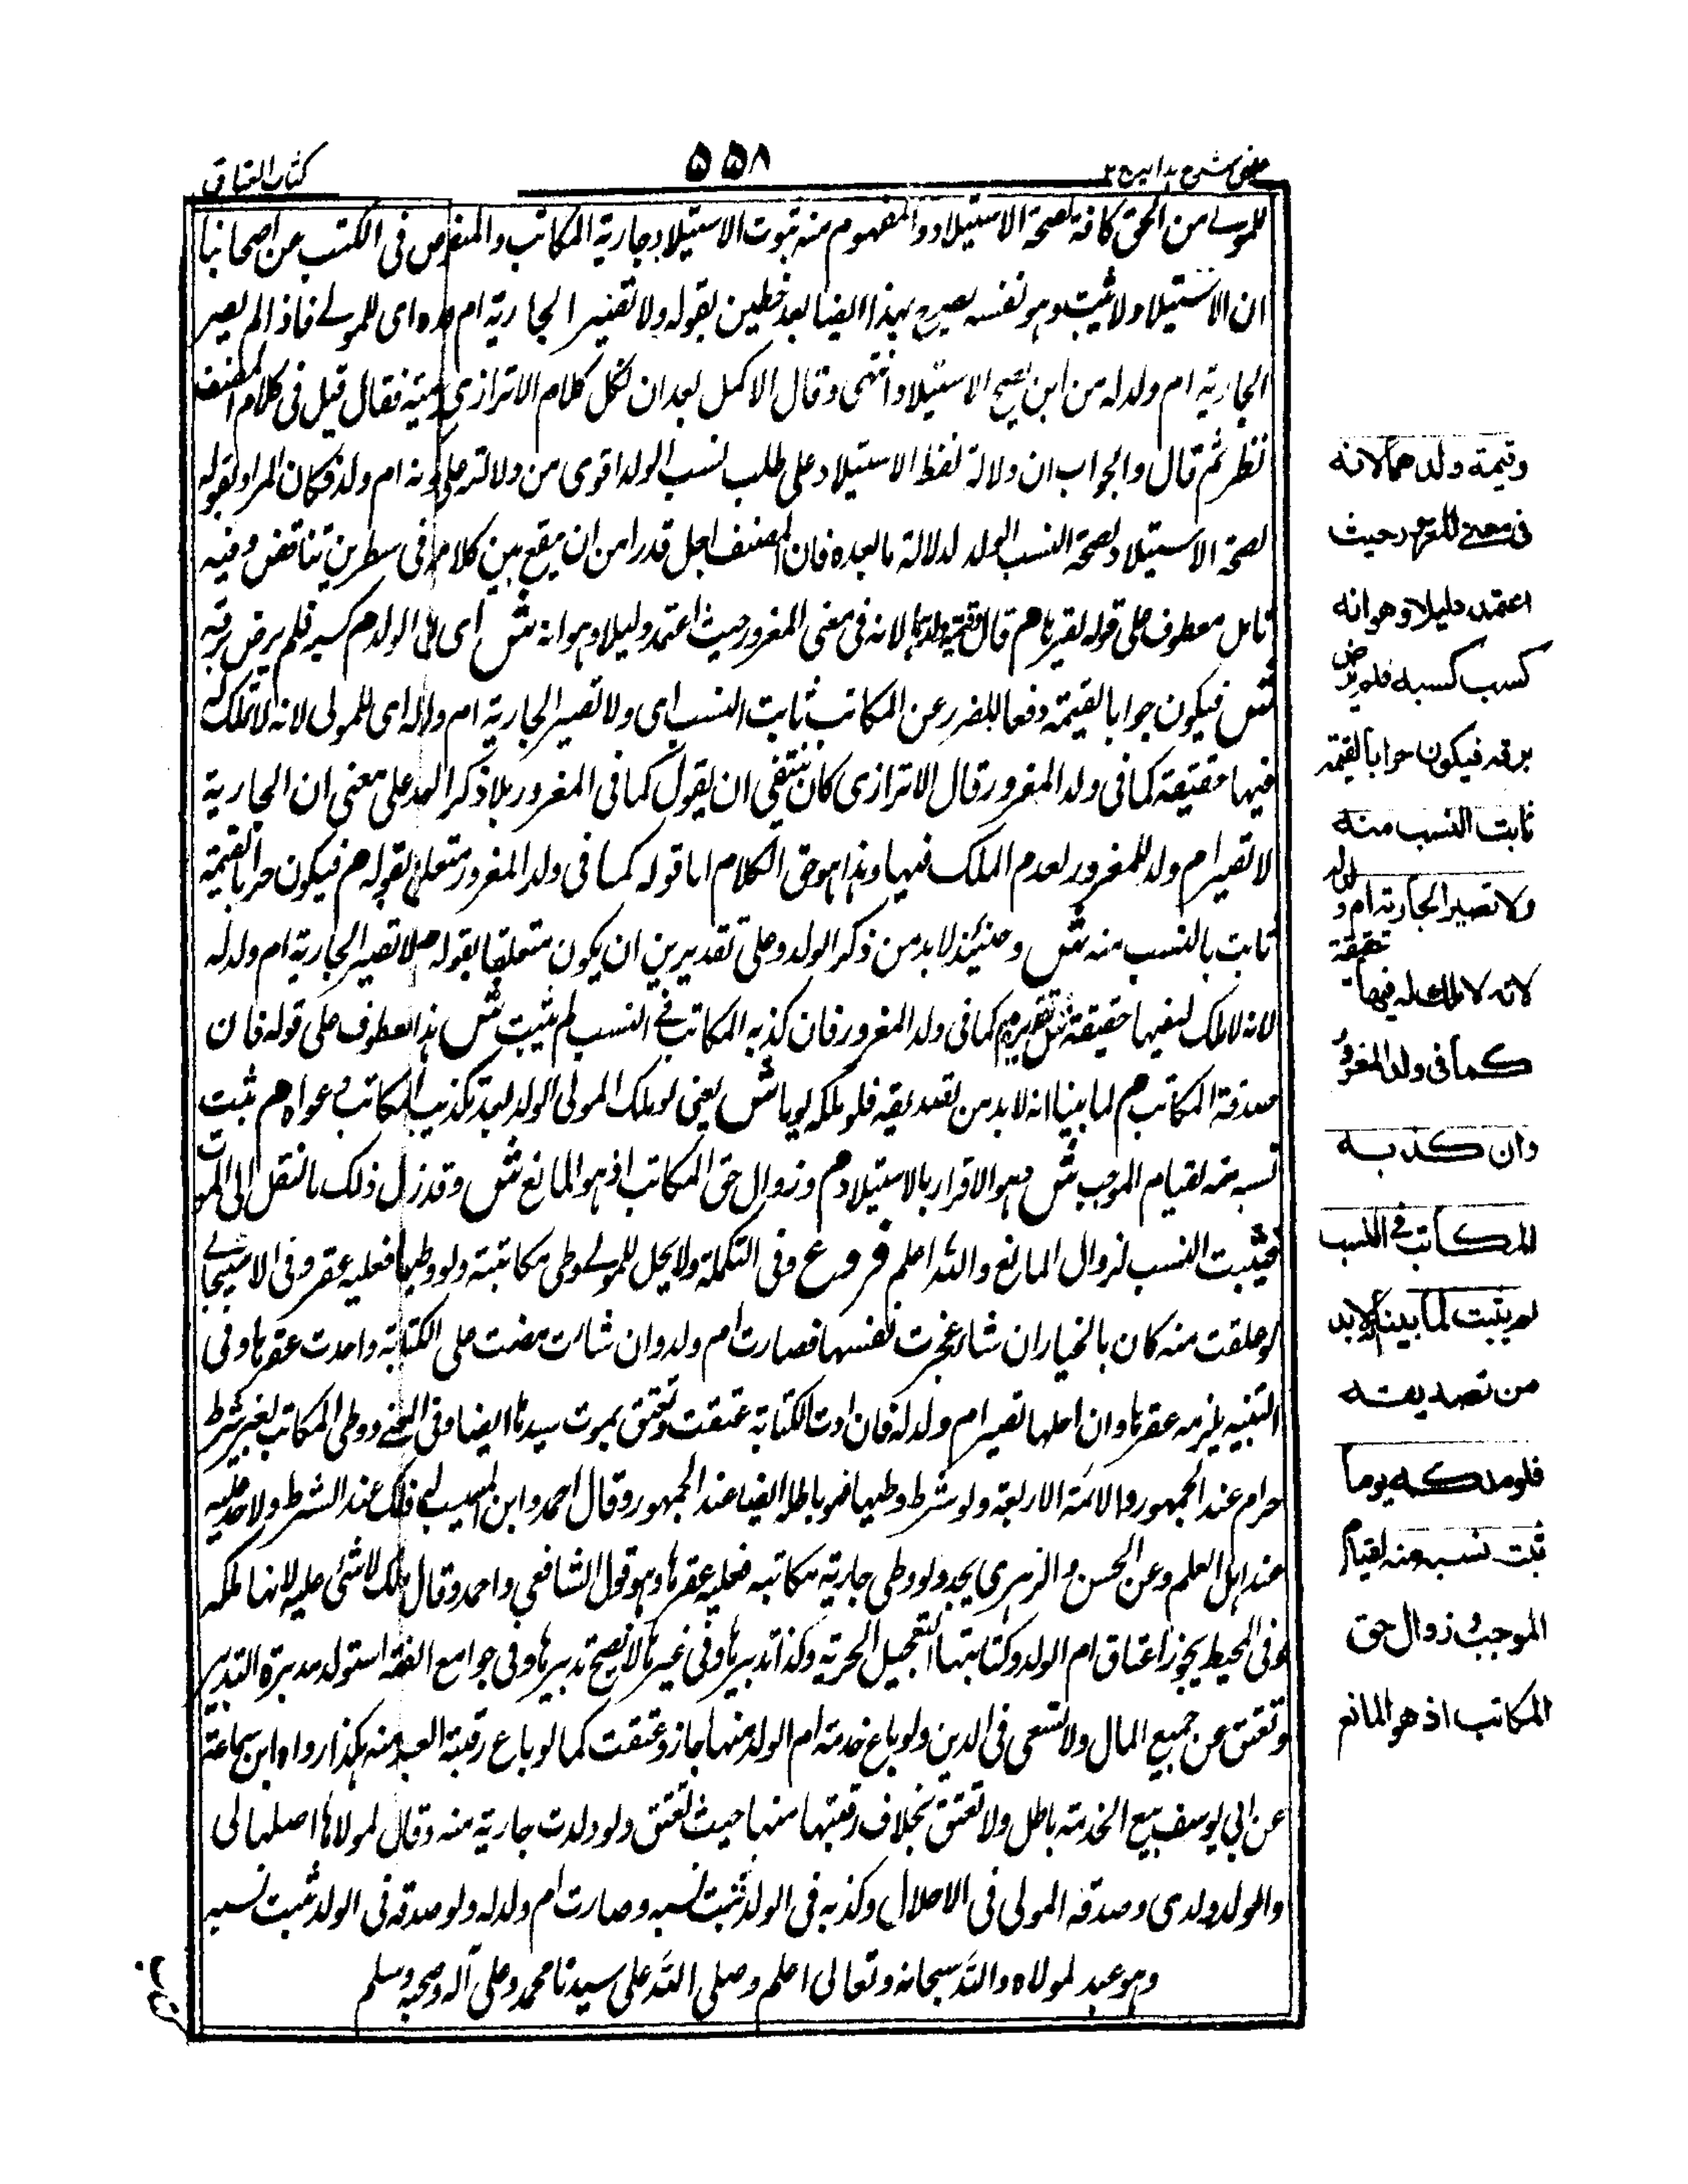 عینی شرح ہدایہ ج ۲
۵۵۸
کتاب العتاق
للمولے من الحق کافۃ لصحۃ الاستیلاد والمفہوم منہ ثبوت الاستیلاد بجاریۃ المکاتب والمنصوص فی الکتب عن اصحابنا
ان الاستیلاد لا یثبت وہو نفسہ یصرح بہذا ایضا بعد خطین بقولہ ولا تصیر الجاریۃ ام ولدہ ای للمولے فاذا لم یصیر
الجاریۃ ام ولد لہ من این یصح الاستیلاد انتہی وقال الاکمل بعد ان نقل کلام الاترازی فقال قیل فی کلام المصنف
نظر ثم قال والجواب ان دلالۃ لفظ الاستیلاد علی طلب نسب الولد اقوی من دلالتہ علی کونہ ام ولد فکان المراد بقولہ
لصحۃ الاستیلاد لصحۃ النسب الولد لدلالۃ ما بعدہ فان المصنف اجل قدرا من ان یقع بین کلامہ فی سطرین تناقض وفیہ
تامل معطوف علی قولہ لعقرہا م قال وقیمۃ ولدہا لانہ فی معنی المغرور حیث اعتمد دلیلا وہو انہ ش ای الولد م کسبہ فلم یرض برقہ
ش فیکون حرا بالقیمۃ دفعا للضرر عن المکاتب ثابت النسب ای ولا تصیر الجاریۃ ام ولد لہ ای للمولی لانہ لا ملک لہ
فیہا حقیقۃ کما فی ولد المغرور قال الاترازی کان ینبغی ان یقول کما فی المغرور بلا ذکر الولد علی معنی ان الجاریۃ
لا تصیر ام ولد للمغرور لعدم الملک فیہا وہذا ہو حق الکلام اما قولہ کما فی ولد المغرور متعلق بقولہ م فیکون حرا بالقیمۃ
ثابت بالنسب منہ ش وحینئذ لا بد من ذکر الولد وعلی تقدیرین ان یکون متعلقا بقولہ م لا تصیر الجاریۃ ام ولد لہ
لانہ لا ملک لہ فیہا حقیقۃ ش تقدیرہ م کما فی ولد المغرور فان کذبہ المکاتب فے النسب لم یثبت ش ہذا معطوف علی قولہ فان
صدقۃ المکاتب م لما بینا انہ لا بد من تصدیقہ فلو ملکہ یوما ش یعنی لو ملک المولی الولد بعد تکذیب المکاتب دعواہ م ثبت
نسبہ منہ لقیام الموجب ش وہو الاقرار بالاستیلاد م وزوال حق المکاتب اذ ہو المانع ش وقد زال ذلک بالنقل الی المو
فیثبت النسب لزوال المانع واللہ اعلم فروع وفی التکملۃ ولا یحل للمولے وطی مکاتبتہ ولو وطیہا فعلیہ عقر وفی الاسبیجابے
لو علقت منہ کان بالخیار ان شاءت عجزت نفسہا فصارت ام ولد وان شاءت مضت علی الکتابۃ واخذت عقرہا وفی
التنبیہ یلزمہ عقرہا وان احلہا تصیر ام ولد لہ فان ادت الکتابۃ عتقت وتعتق بموت سیدہا ایضا وفی المغنے ووطی المکاتب بغیر شرط
حرام عند الجمہور والائمۃ الاربعۃ ولو شرط وطیہا فہو باطل ایضا عند الجمہور وقال احمد وابن المسیب لہ ذلک عند الشرط ولا حد علیہ
عند اہل العلم وعن الحسن والزہری یحد ولو وطی جاریۃ مکاتبہ فعلیہ عقرہا وہو قول الشافعی واحمد وقال مالک لا شئی علیہ لانہا ملکہ
وفی المحیط یجوز اعتاق ام الولد وکتابتہا لتعجیل الحریۃ وکذا تدبیرہا وفی غیرہا لا یصح تدبیرہا وفی جوامع الفقہ استولد مدبرۃ التدبیر
وتعتق عن جمیع المال ولا تسعی فی الدین ولو باع خدمۃ ام الولد منہا جاز وعتقت کما لو باع رقبۃ العبد منہ ہکذا رواہ ابن سماعۃ
عن ابی یوسف بیع الخدمۃ باطل ولا تعتق بخلاف رقبتہا منہا حیث تعتق ولو ولدت جاریۃ منہ وقال لمولاہا احلہا لی
والولد ولدی وصدقہ المولی فی الاحلال وکذبہ فی الولد ثبت نسبہ وصارت ام ولد لہ ولو صدقہ فی الولد ثبت نسبہ
وہو عبد لمولاہ واللہ سبحانہ وتعالی اعلم وصلی اللہ علی سیدنا محمد وعلی آلہ وصحبہ وسلم
وقیمۃ ولدھا لانہ
فی معنے المغرور حیث
اعتمد دلیلا وھو انہ
کسب کسبہ فلم یرض
برقہ فیکون حرا بالقیمۃ
ثابت النسب منہ
ولا تصیر الجاریۃ ام ولد لہ
لانہ لا ملک لہ فیہا حقیقۃ
کما فی ولد المغرور
وان کذبہ
المکاتب فے النسب
لم یثبت لما بینا انہ لا بد
من تصدیقہ
فلو ملکہ یوما
ثبت نسبہ منہ لقیام
الموجب وزوال حق
المکاتب اذ ھو المانع